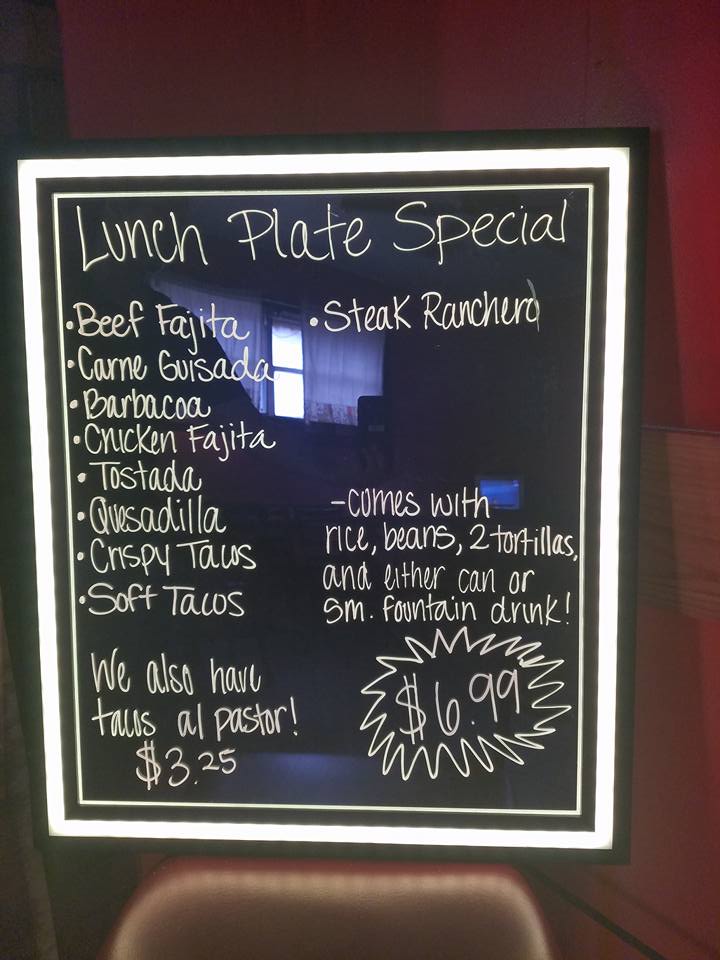 Lunch Plate Special
• Beef Fajita
• Carne Guisada
• Barbacoa
• Chicken Fajita
• Tostada
• Quesadilla
• Crispy Tacos
• Soft Tacos
• Steak Ranchero
-comes with
rice, beans, 2 tortillas,
and either can or
sm. fountain drink!
$6.99
We also have
tacos al pastor!
$3.25